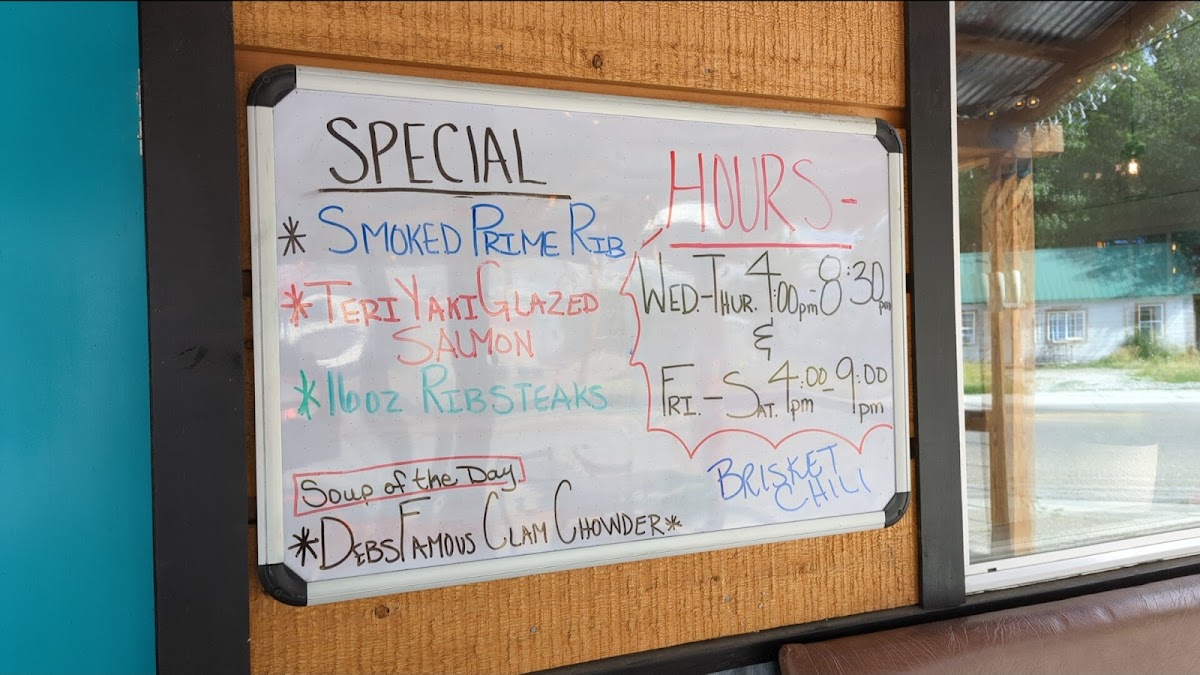 SPECIAL
* SMOKED PRIME RIB
* TERIYAKI GLAZED
SALMON
* 16oz RIBSTEAKS
Soup of the Day
* DEBS FAMOUS CLAM CHOWDER *
HOURS -
WED.-THUR. 4:00pm-8:30pm
&
FRI.-SAT. 4:00pm-9:00pm
BRISKET
CHILI